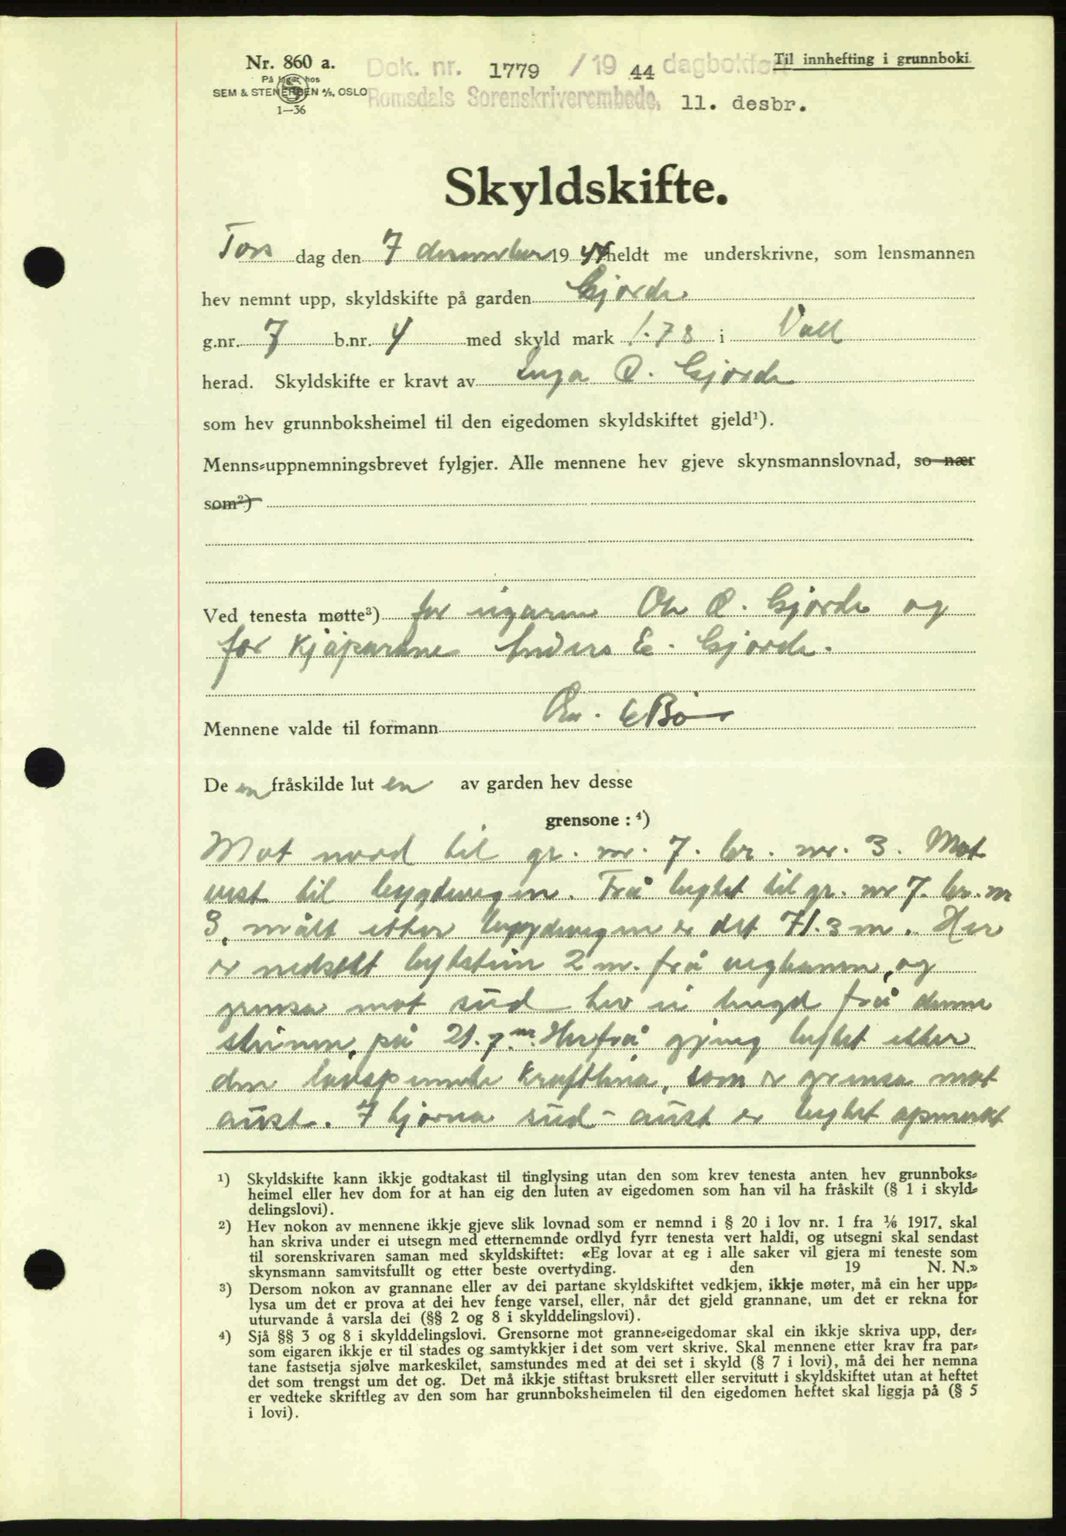 Nr. 860 a.
På lager hos
SEM & STENERSEN A/S, OSLO
1—36
Dok. nr. 1779 / 19 44 dagbokført
Romsdals Sorenskriverembede, 11. desbr.
Til innhefting i grunnboki
Skyldskifte.
Tors dag den 7 desember 19 44 heldt me underskrivne, som lensmannen
hev nemnt upp, skyldskifte på garden Gjorde
g.nr. 7 b.nr. 4 med skyld mark 1.78 i Voll
herad. Skyldskifte er kravt av Inga O. Gjorde
som hev grunnboksheimel til den eigedomen skyldskiftet gjeld¹).
Menns⸗uppnemningsbrevet fylgjer. Alle mennene hev gjeve skynsmannslovnad, so nær
som²)
Ved tenesta møtte³) for eigaren Ole O. Gjorde og
for kjøparane Anders E. Gjorde.
Mennene valde til formann E Bø
De en fråskilde lut en av garden hev desse
grensone : ⁴)
Mot nord til gr. nr. 7. br. nr. 3. Mot
vest til bygdevegen. Frå bytet til gr. nr 7. br. nr
3, målt etter bygdevegen er det 71.3 m. Her
er nedsett bytestein 2 m. frå vegkanten, og
grensa mot sud hev ei lengd frå denne
steinen på 21.7 m. Herfrå gjeng bytet etter
den lavspente kraftlina, som er grensa mot
aust. I hjørna sud-aust er bytet opmerkt
¹) Skyldskifte kann ikkje godtakast til tinglysing utan den som krev tenesta anten hev grunnboks⸗
heimel eller hev dom for at han eig den luten av eigedomen som han vil ha fråskilt (§ 1 i skyld⸗
delingslovi).
²) Hev nokon av mennene ikkje gjeve slik lovnad som er nemnd i § 20 i lov nr. 1 fra 1/6 1917, skal
han skriva under ei utsegn med etternemnde ordlyd fyrr tenesta vert haldi, og utsegni skal sendast
til sorenskrivaren saman med skyldskiftet: «Eg lovar at eg i alle saker vil gjera mi teneste som
skynsmann samvitsfullt og etter beste overtyding. den 19 N. N.»
³) Dersom nokon av grannane eller av dei partane skyldskiftet vedkjem, ikkje møter, må ein her upp⸗
lysa um det er prova at dei hev fenge varsel, eller, når det gjeld grannane, um det er rekna for
uturvande å varsla dei (§§ 2 og 8 i skylddelingslovi).
⁴) Sjå §§ 3 og 8 i skylddelingslovi. Grensorne mot granne⸗eigedomar skal ein ikkje skriva upp, der⸗
som eigaren ikkje er til stades og samtykkjer i det som vert skrive. Skal mennene etter krav fra par⸗
tane fastsetja sjølve markeskilet, samstundes med at dei set i skyld (§ 7 i lovi), må dei her nemna
det som trengst um det og. Det må ikkje stiftast bruksrett eller servitutt i skyldskiftet utan at heftet
er vedteke skriftleg av den som har grunnboksheimelen til den eigedomen heftet skal liggja på (§ 5
i lovi).